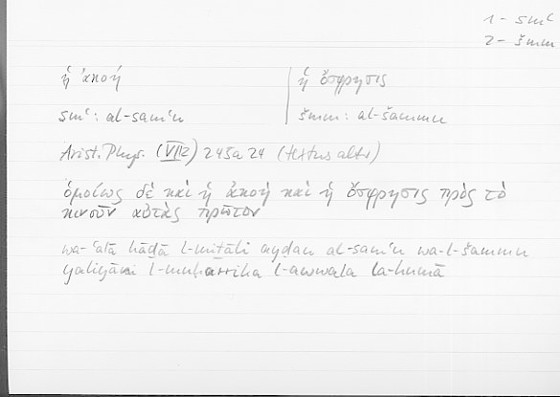 1 - smʿ
2 - šmm
ἡ ἀκοή
ἡ ὄσφρησις
smʿ: al-samʿu
šmm: al-šammu
Arist. Phys. (VII2) 245a 24 (textus alter)
ὁμοίως δὲ καὶ ἡ ἀκοὴ καὶ ἡ ὄσφρησις πρὸς τὸ
κινοῦν αὐτὰς πρῶτον
wa-ʿalā hāḏā l-miṯāli ayḍan al-samʿu wa-l-šammu
yaliyāni l-muḥarrika l-awwala la-humā